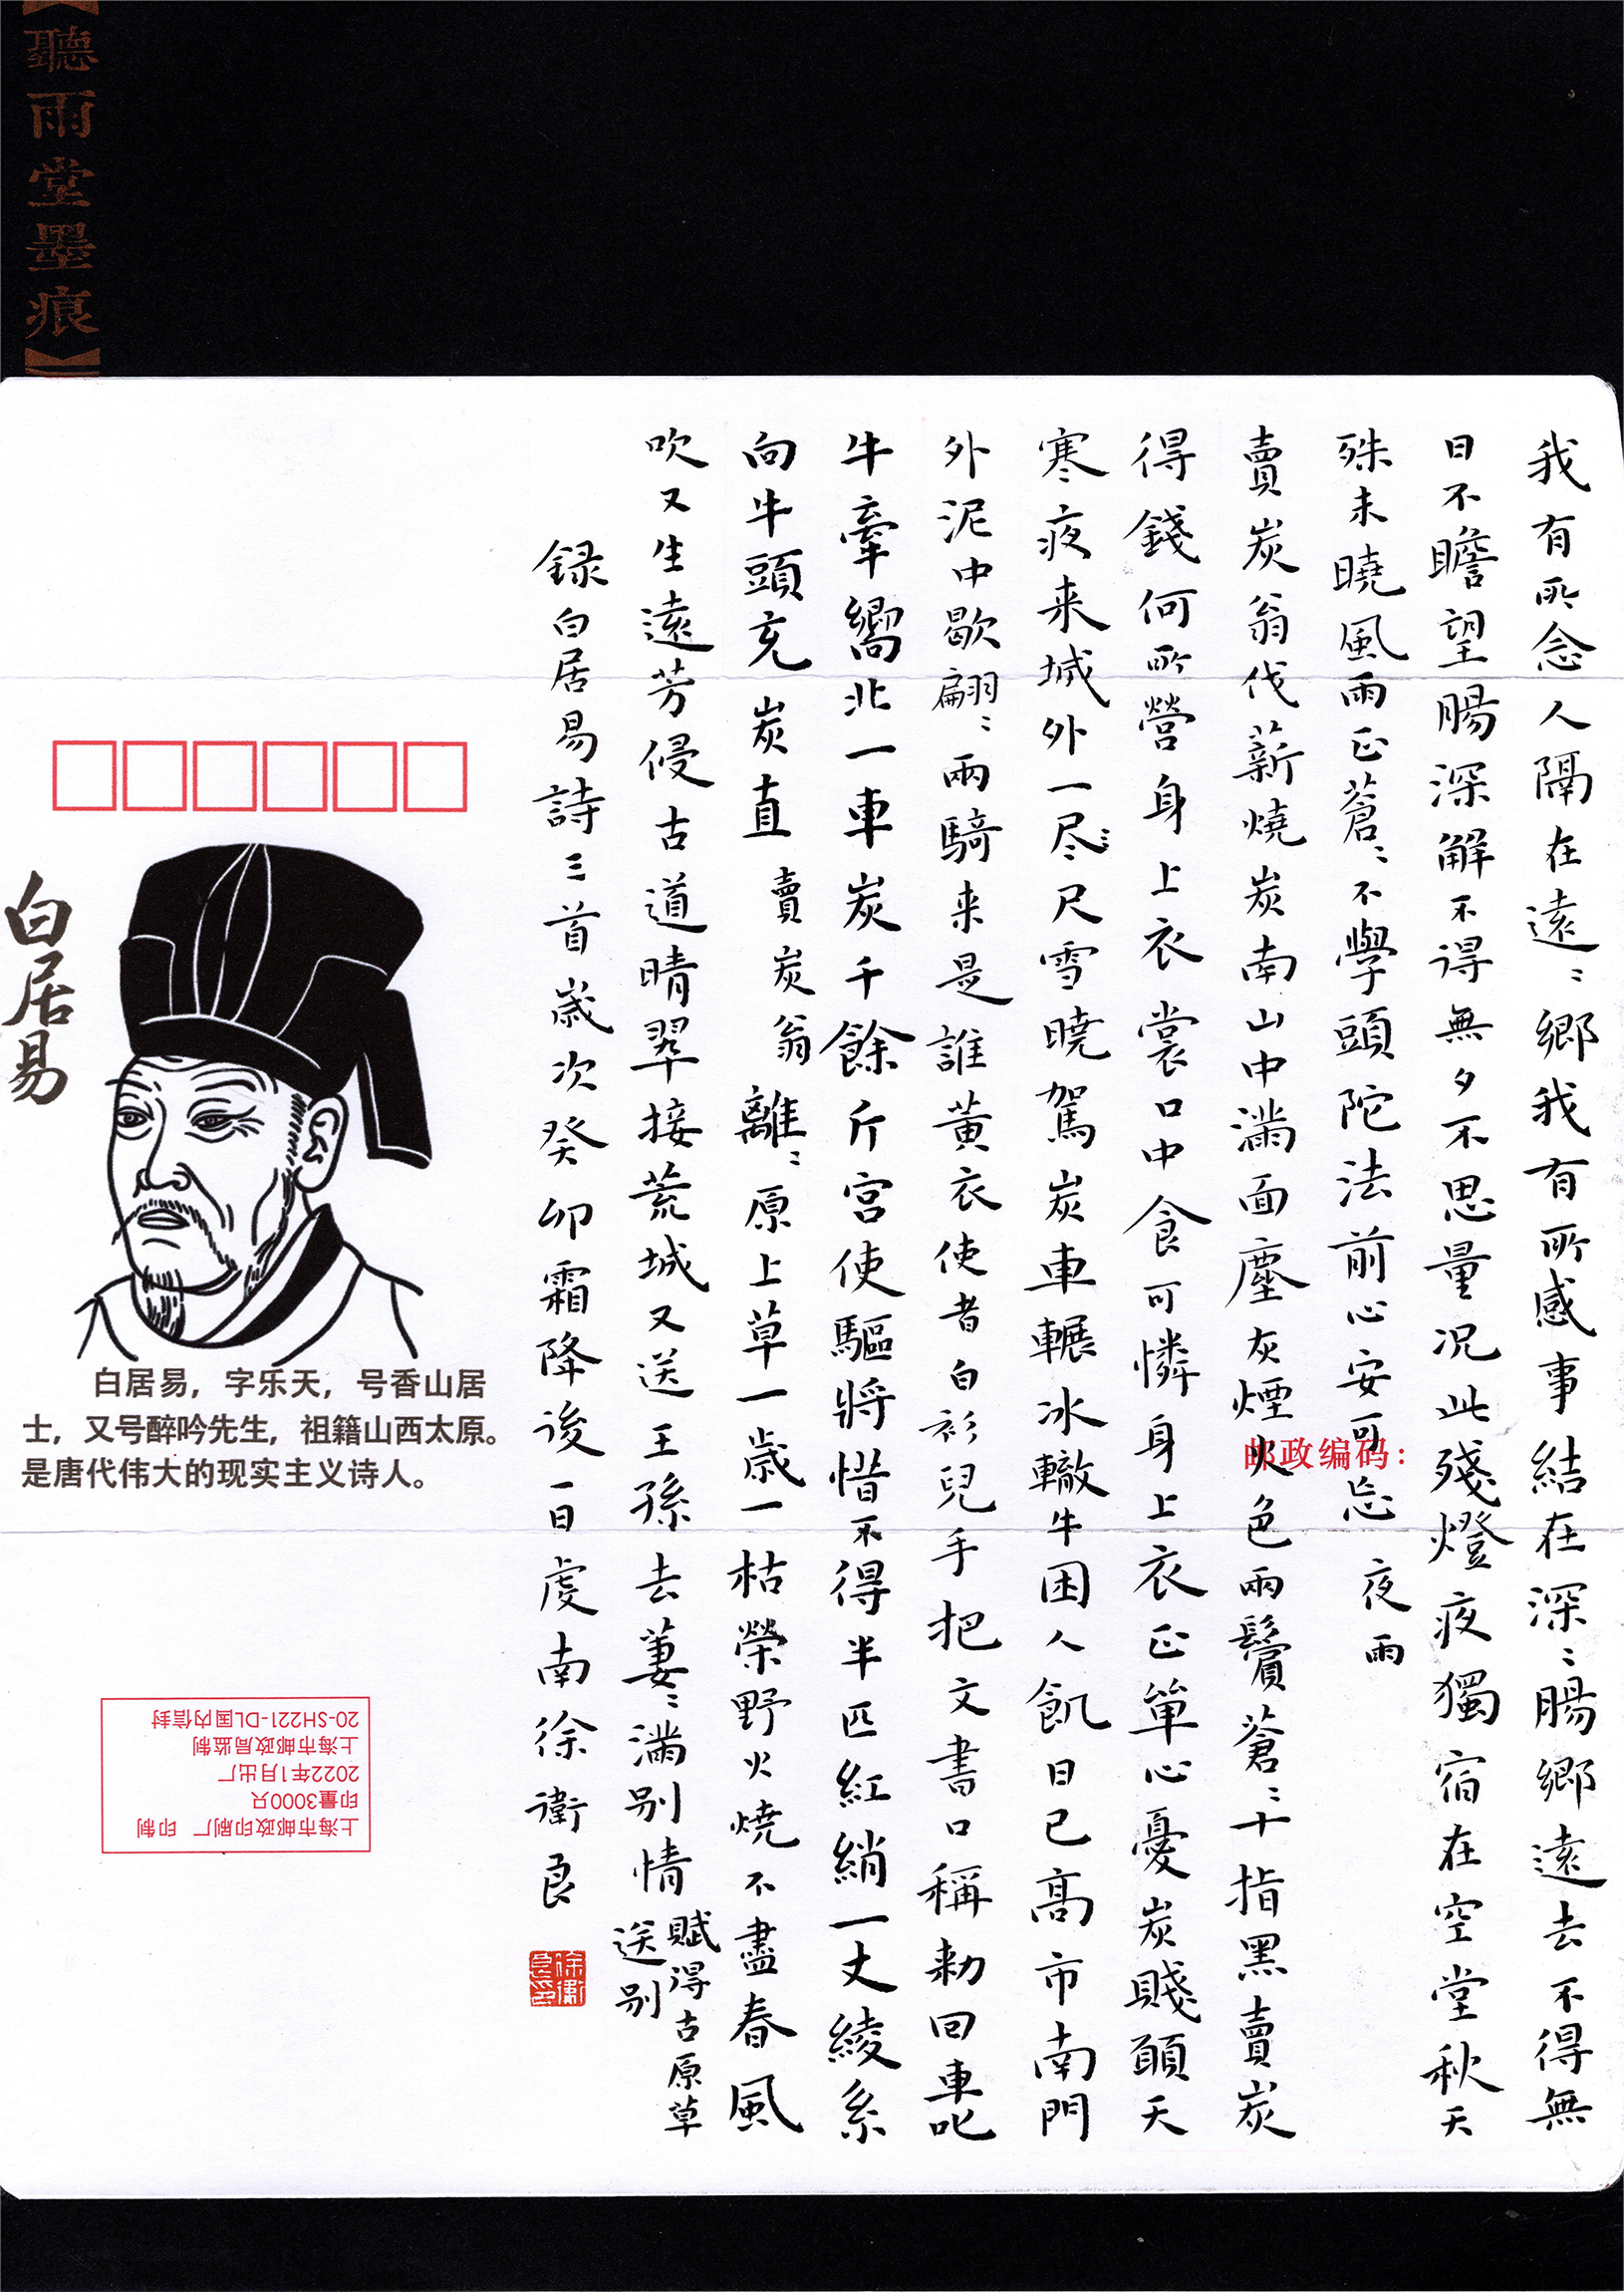 【聽雨堂墨痕】
我有所念人隔在遠〻鄉我有所感事結在深〻腸鄉遠去不得無
日不瞻望腸深解不得無夕不思量况此殘燈夜獨宿在空堂秋天
殊未曉風雨正蒼〻不學頭陀法前心安可忘 夜雨
賣炭翁伐薪燒炭南山中滿面塵灰煙火色兩鬢蒼〻十指黑賣炭
得錢何所營身上衣裳口中食可憐身上衣正單心憂炭賤願天
寒夜来城外一尽尺雪曉駕炭車輾冰轍牛困人飢日已高市南門
外泥中歇翩〻兩騎来是誰黄衣使者白衫兒手把文書口稱勅回車叱
牛牽嚮北一車炭千餘斤宫使驅將惜不得半匹紅綃一丈綾系
向牛頭充炭直 賣炭翁 離〻原上草一歲一枯榮野火燒不盡春風
吹又生遠芳侵古道晴翠接荒城又送王孫去萋〻滿别情 賦得古原草
送别
録白居易詩三首歲次癸卯霜降後一日虔南徐衛良
徐衛良印
邮政编码：
白居易
白居易，字乐天，号香山居
士，又号醉吟先生，祖籍山西太原。
是唐代伟大的现实主义诗人。
上海市邮政印刷厂 印制
印量3000只
2022年1月出厂
上海市邮政局监制
20-SH221-DL国内信封